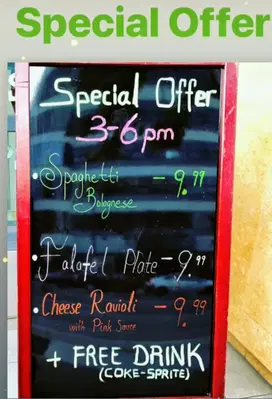 Special Offer
Special Offer
3-6pm
• Spaghetti - 9.99
Bolognese
• Falafel Plate - 9.99
• Cheese Ravioli - 9.99
with Pink Sauce
+ FREE DRINK
(COKE-SPRITE)